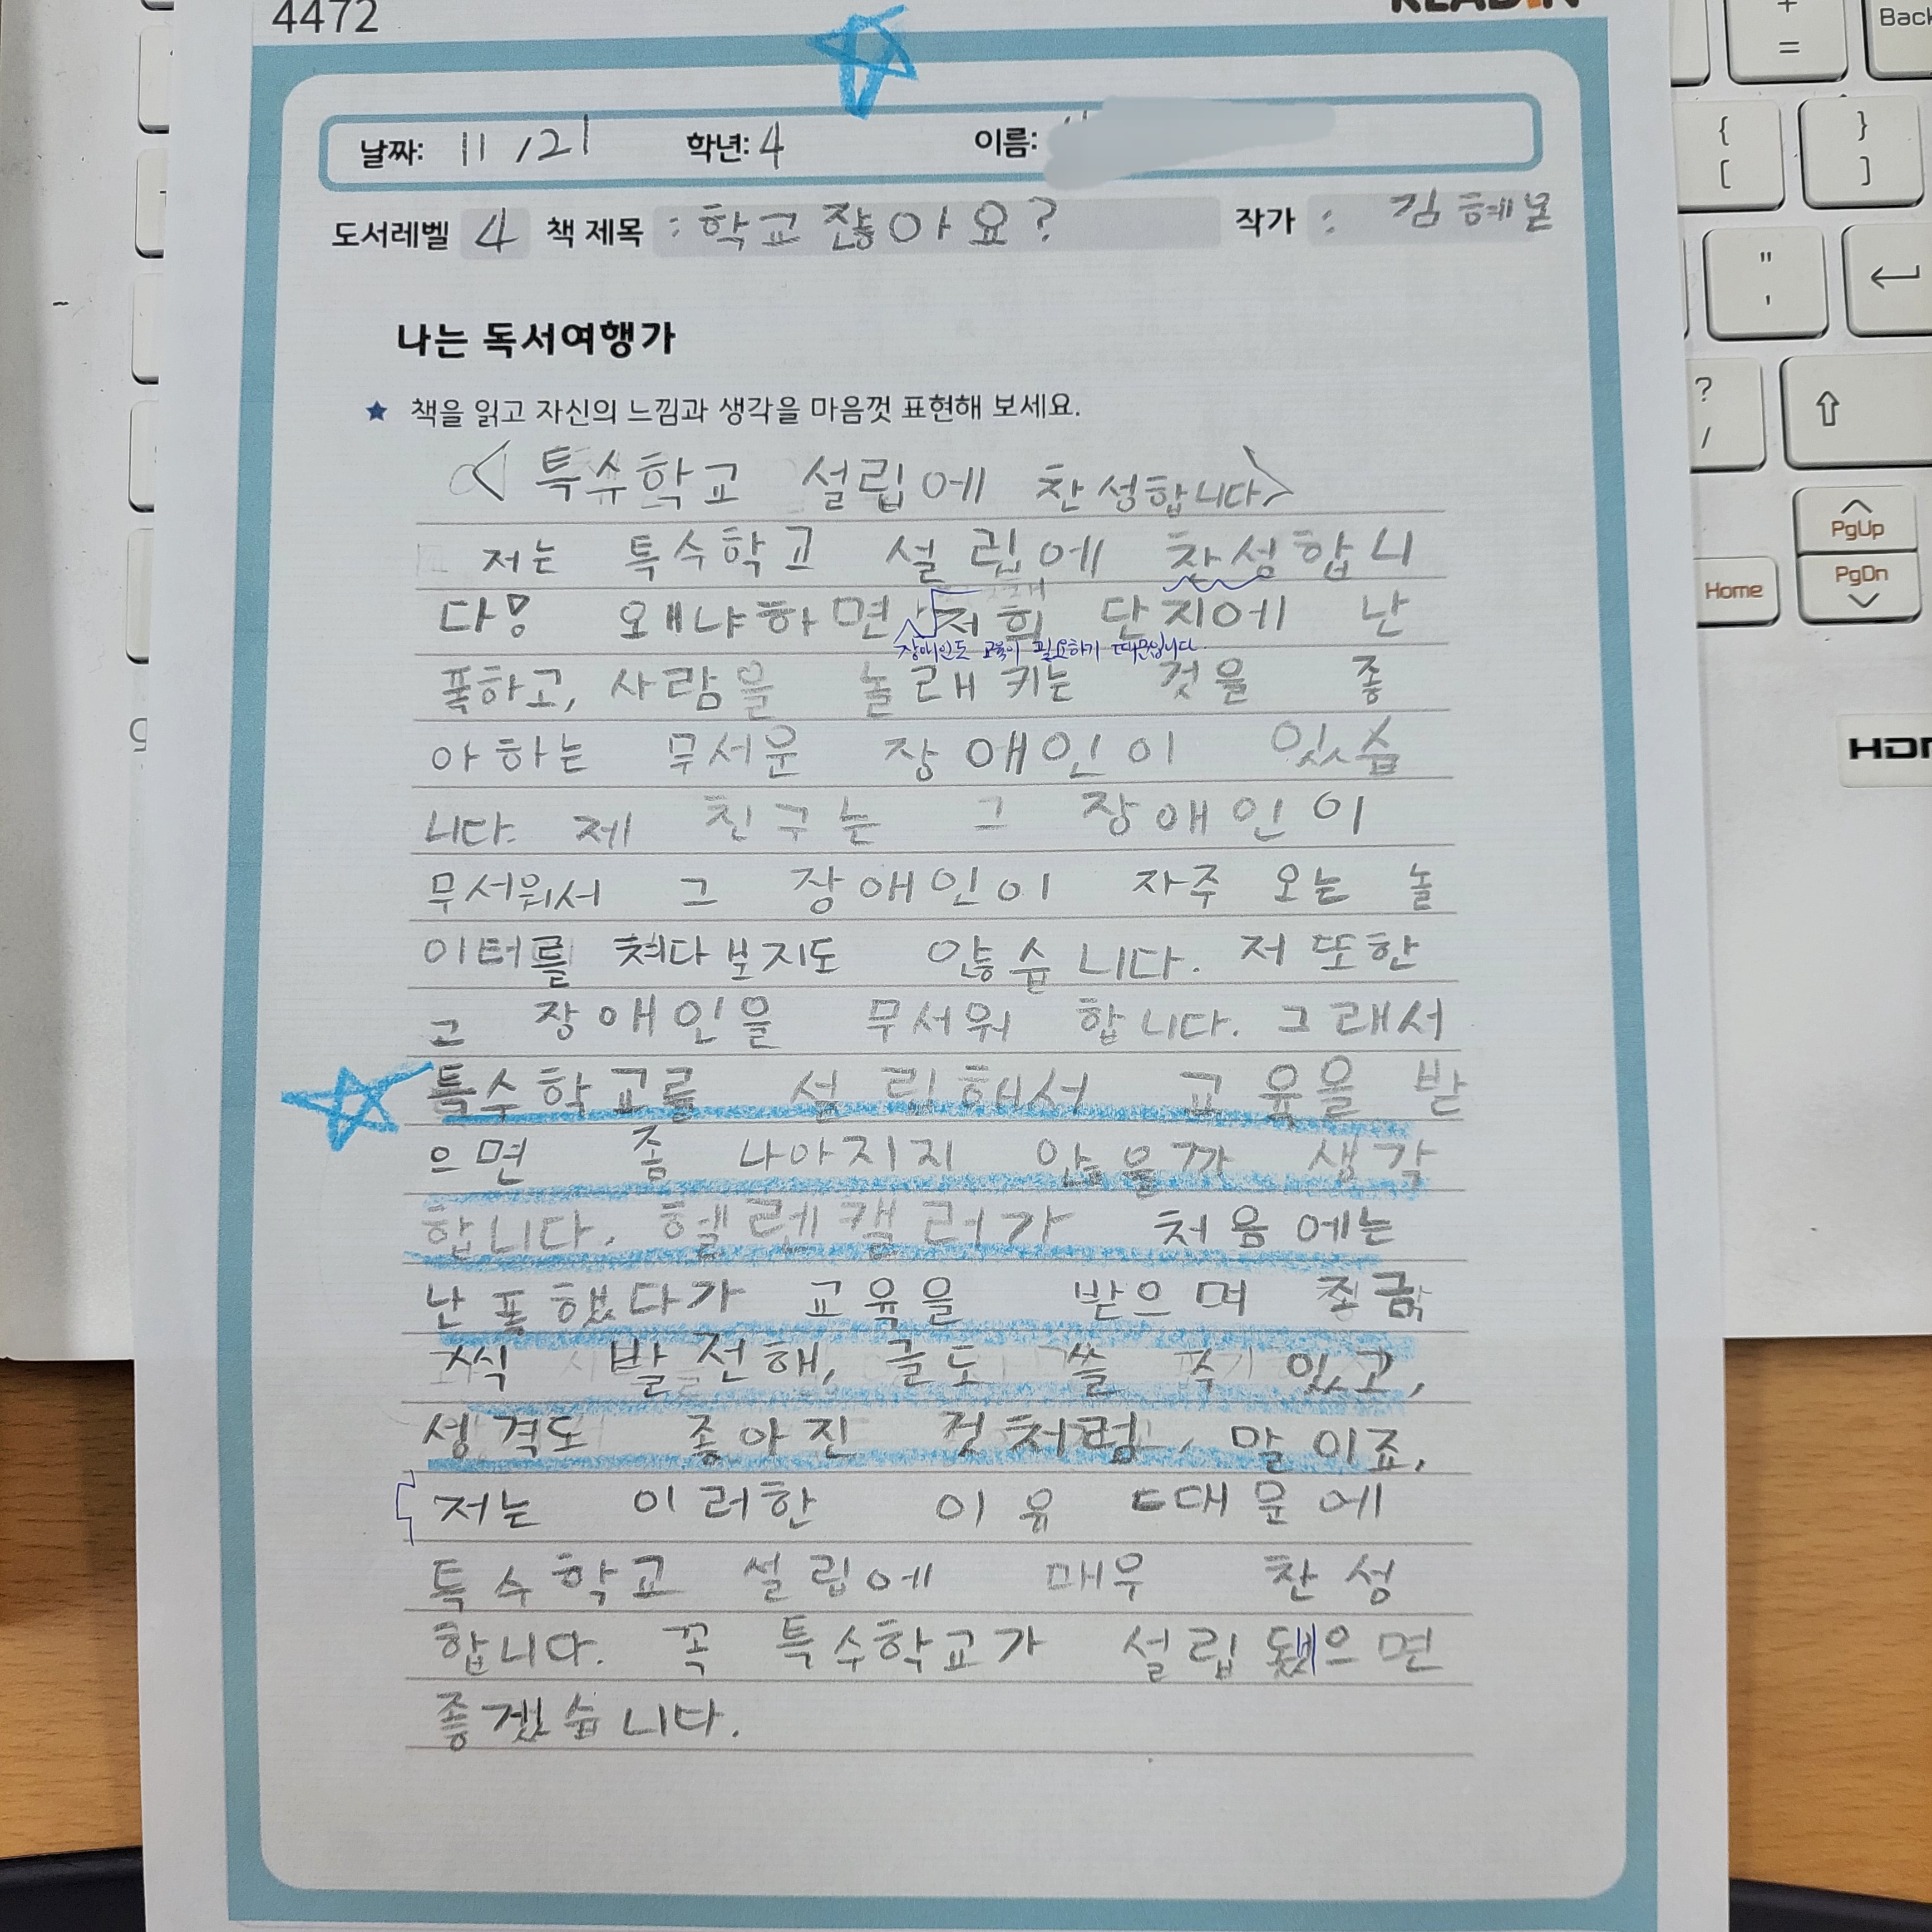 4472
READiN
날짜: 11/21 학년: 4 이름:
도서레벨 4 책 제목 : 학교 잖아요? 작가 : 김혜온
나는 독서여행가
★ 책을 읽고 자신의 느낌과 생각을 마음껏 표현해 보세요.
<특수학교 설립에 찬성합니다>
저는 특수학교 설립에 찬성합니
다! 왜냐하면 저희 단지에 난
장애인도 교육이 필요하기 때문입니다.
폭하고, 사람을 놀래키는 것을 좋
아하는 무서운 장애인이 있습
니다. 제 친구는 그 장애인이
무서워서 그 장애인이 자주 오는 놀
이터를 쳐다보지도 않습니다. 저 또한
그 장애인을 무서워 합니다. 그래서
특수학교를 설립해서 교육을 받
으면 좀 나아지지 않을까 생각
합니다. 헬렌켈러가 처음에는
난폭했다가 교육을 받으며 조금
씩 발전해, 글도 쓸 수 있고,
성격도 좋아진 것처럼, 말이죠.
저는 이러한 이유 때문에
특수학교 설립에 매우 찬성
합니다. 꼭 특수학교가 설립됐으면
좋겠습니다.
+
=
Back
{
[
}
]
"
'
?
/
PgUp
Home
PgDn
HDMI